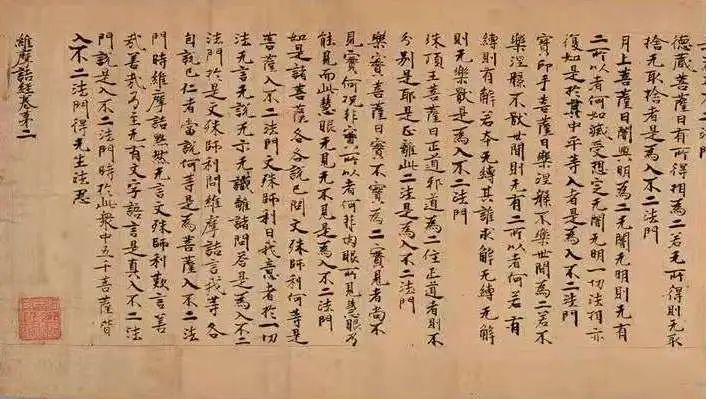 德藏菩薩曰有所得相為二若无所得則无取
捨无取捨者是為入不二法門
月上菩薩曰闇與明為二无闇无明則无有
二所以者何如滅受想定无闇无明一切法相亦
復如是於其中平等入者是為入不二法門
寶印手菩薩曰樂涅槃不樂世間為二若不
樂涅槃不猒世間則无有二所以者何若有
縛則有解若本无縛其誰求解无縛无解
則无樂猒是為入不二法門
珠頂王菩薩曰正道邪道為二住正道者則不
分別是耶是正離此二法是為入不二法門
樂實菩薩曰實不實為二實見者尚不
見實何況非實所以者何非肉眼所見慧眼乃
能見而此慧眼无見无不見是為入不二法門
如是諸菩薩各各說已問文殊師利何等是
菩薩入不二法門文殊師利曰我意者於一切
法无言无說无示无識離諸問答是為入不二
法門於是文殊師利問維摩詰言我等各
自說已仁者當說何等是為菩薩入不二法
門時維摩詰默然无言文殊師利歎言善
哉善哉乃至无有文字語言是真入不二法
門說是入不二法門時於此衆中五千菩薩皆
入不二法門得无生法忍
維摩詰經卷第二